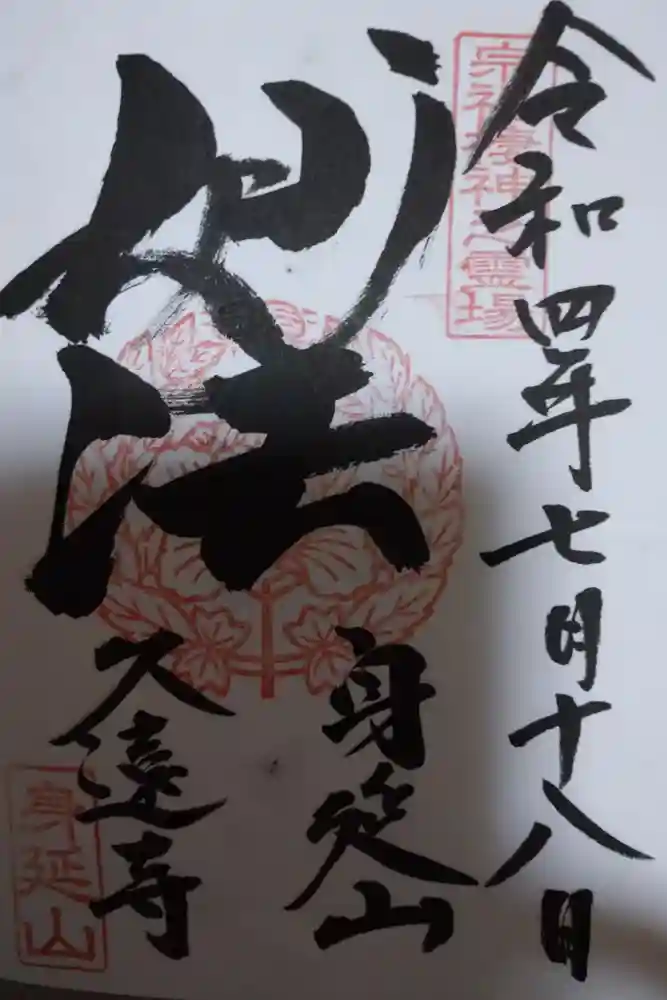 宗祖棲神之霊場
令和四年七月十八日
妙法
身延山
久遠寺
身延山